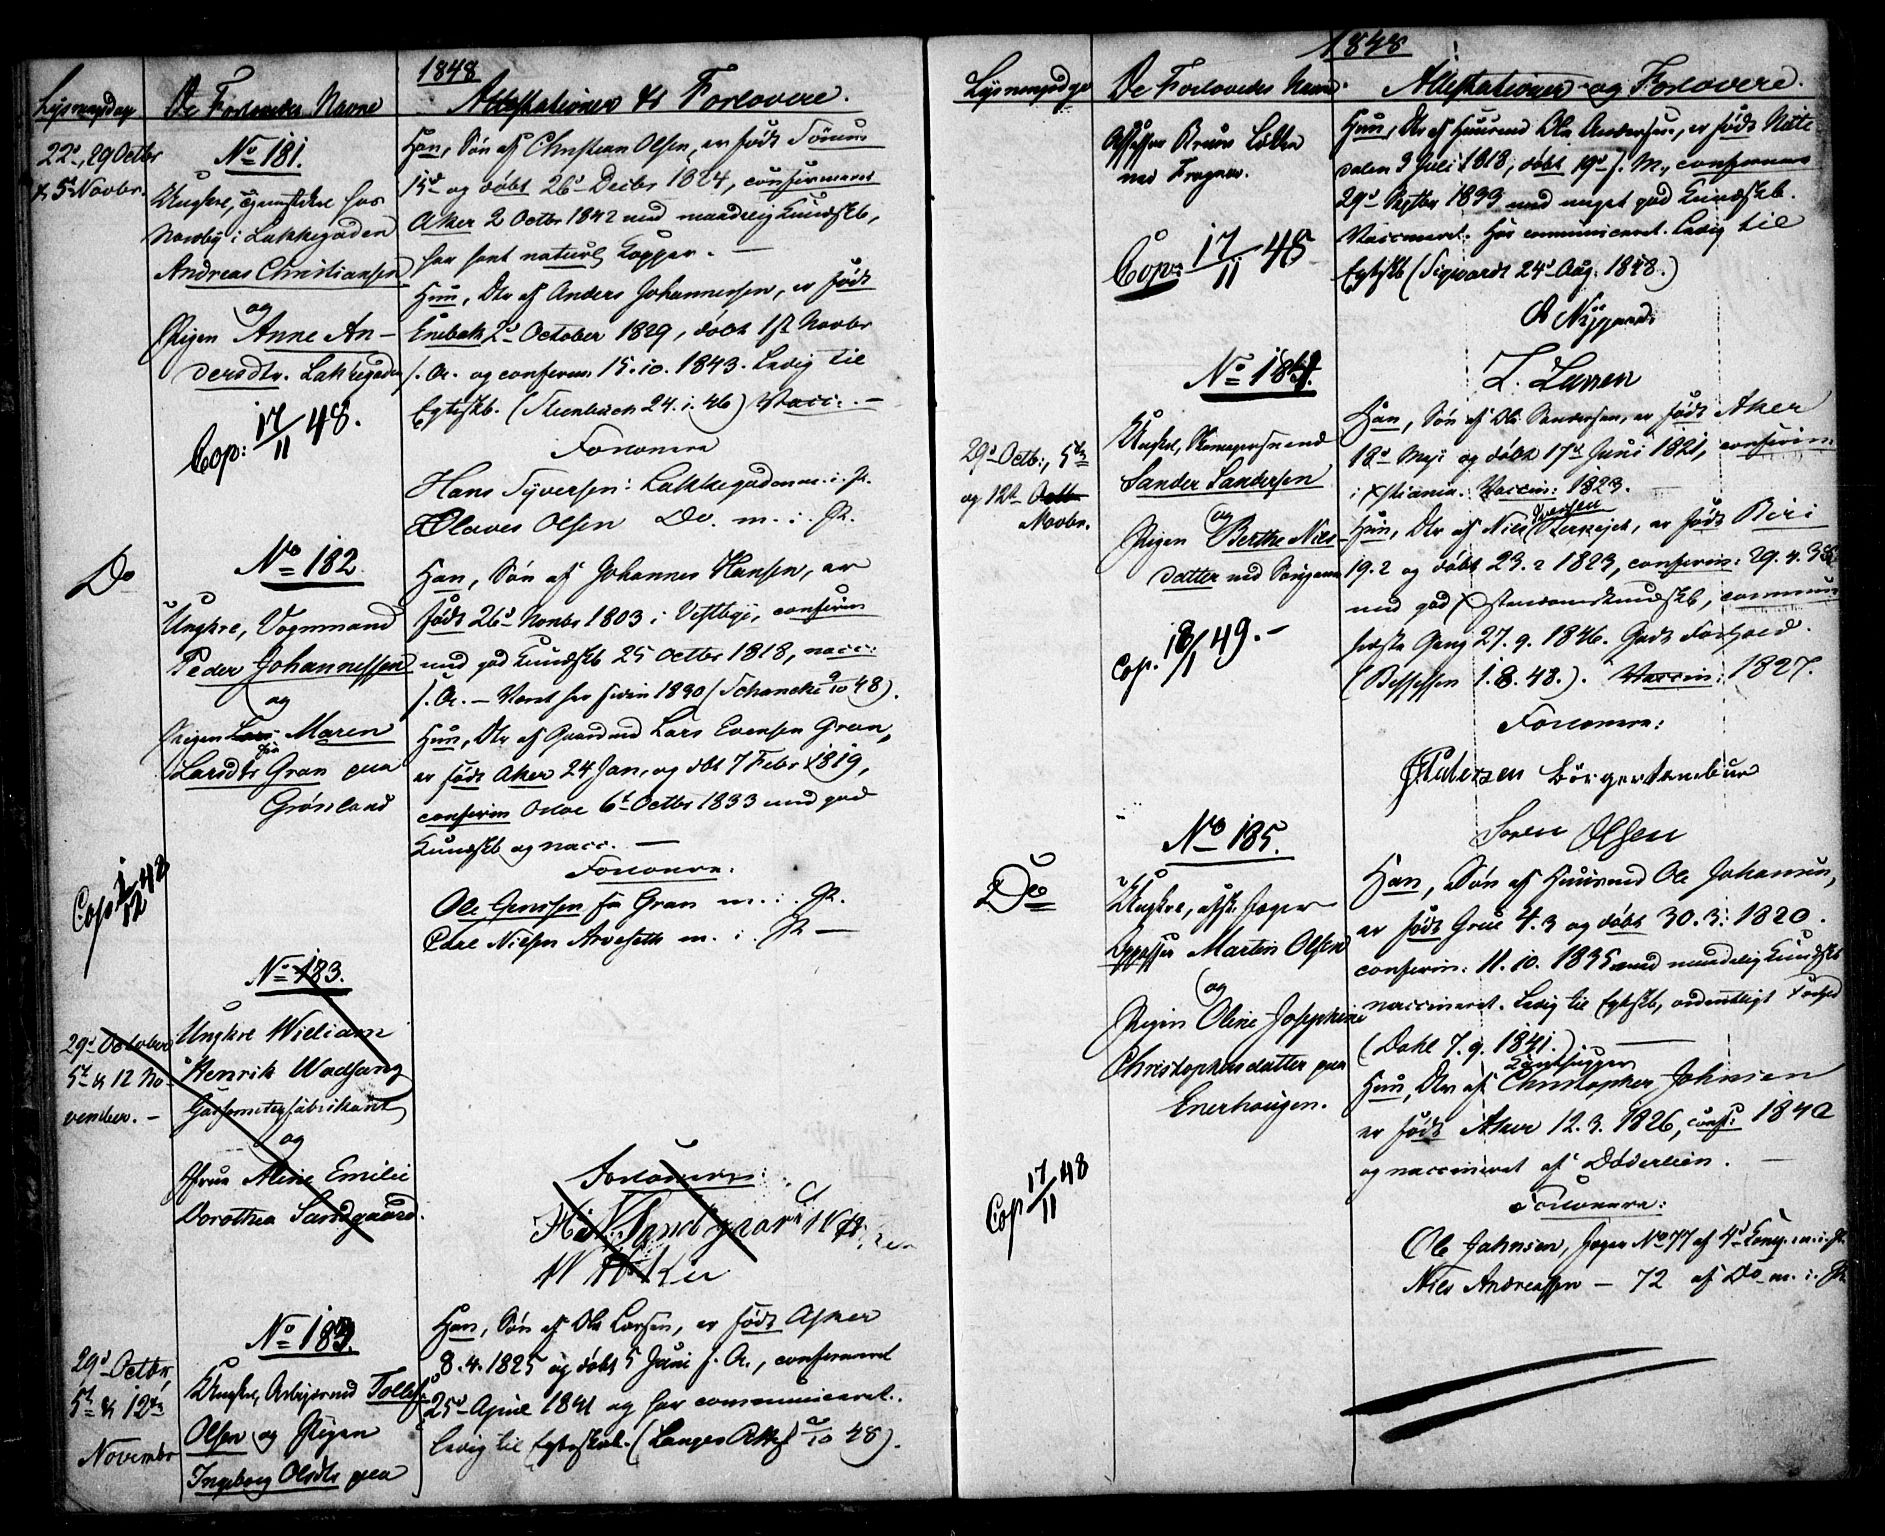 1848
Lysningsdag
De Forlovedes Navne
Attestationer & Forlovere.
22d, 29 Octbr
& 5t Novbr.
No 181.
Ungkrl,
Lakkegaden
Andreas Christiansen
og
Pigen Anne An-
dersdtr. Lakkegaden
Cop: 17/11 48.
Han, Søn af Christian Olsen, er født
15d og døbt 26d Decbr 1824, confirmeret
Aker 2 Octbr 1842 med maadelig Kundskb,
har havt naturl Kopper. —
Hun, Dtr af Anders Johannessen, er født
Enebak 2d October 1829, døbt 1st Novbr
s. A. og confirm. 15.10.1843. Ledig til
Egtskb. (Steenbuch 24.1.46) Vacc. —
Forlovere
Hans Syversen: Lakkegaden m. i. P.
Olaves Olsen Do. m. i. P.
Do
No 182.
Ungkrl, Vognmand
Peder Johannessen
og
Pigen Maren
Larsdtr Gran paa
Grønland
Cop 1/12 48
Han, Søn af Johannes Hansen, er
født 26d Novbr 1803 i Vestbye, confirm
med god Kundskb 25 Octbr 1818, vacc:
s. A. — Været her siden 1830 (Schancke 9/10 48).
Hun, Dtr af Gaardmd Lars Evensen Gran,
er født Aker 24 Jan, og dbt 7 Febr 1819,
confirm Oslo 6t Octbr 1833 med god
Kundskb og vacc. —
Forlovere:
Ole Jenssen fra Gran m. i. P.
Carl Nielsen Arveseth m. i. P. —
No 183.
29d October
5t & 12 No-
vember. —
Ungkrl William
Henrik Wadfang
Gassometerfabrikant
og
Frue Aline Emilie
Dorothea Sandgaard.
Forlovere:
No 183.
29d Octbr,
5t & 12te
Novembr
Ungkrl, Arbeidsmd Tollef
Olsen og Pigen
Ingeborg Olsdtr paa
Han, Søn af Ole Larsen, er født Asker
8.4.1825 og døbt 5 Juni s. A., confirmeret
25d April 1841 og har communiceret.
Ledig til Egteskab. (Langes Attest 2/10 48).
1848
Lysningsdge
De Forlovedes Navne.
Attestationer og Forlovere.
Assessor Bruun Løkken
ved Frogner.
Cop: 17/11 48
Hun, Dtr af Huusmd Ole Andersen, er født Nitte
dalen 9 Juli 1818, døbt 19d s. M., confirmeret
29d Septbr 1833 med meget god Kundskb.
Vaccineret. Har communiceret. Ledig til
Egtskb (Sigwardt 24d Aug. 1848.)
O Nygaard
L. Larsen
No 184.
29d Octb:, 5te
og 12te Octbr
Novbr.
Ungkrl,
Sander Sandersen
og
Pigen Berthe Niels-
datter ved
Cop. 18/1 49. —
Han, Søn af Ole Sandersen, er født Aker
18d Maji og døbt 17d Juni 1821, confirm:
i Xstiania. Vaccin: 1823. —
Hun, Dtr af Niels Iversen, er født Biri
19.2 og døbt 23.2 1823, confirm: 29.4.38
med god Xstendomskundskb, commun:
første Gang 27.9.1846. Godt Forhold.
(Bessessen 1.8.48.). Vaccin: 1827.
Forlovere:
Petersen Børgertambur
Søren Olsen
Do
No 185.
Ungkrl, afsk. Jæger
Opasser Martin Olsen
og
Pigen Oline Josephine
Christophersdatter paa
Enerhougen.
Cop 17/11 48
Han, Søn af Huusmd Ole Johansen,
er født Grue 4.3 og døbt 30.3.1820.
confirm: 11.10.1835 med maadelig Kundskb
vaccineret. Ledig til Egtskb, ordentligt Forhold
(Dahl 7.9.1841.) —
Hun, Dtr af Christopher Johnsen
er født Aker 12.3.1826, conf: 1840
og vaccineret af Døderlein. —
Forlovere:
Ole Johnsen, Jæger No 77 af 4d Comp. m. i. P.
Niels Andreassen — 72 af Do m. i. P.